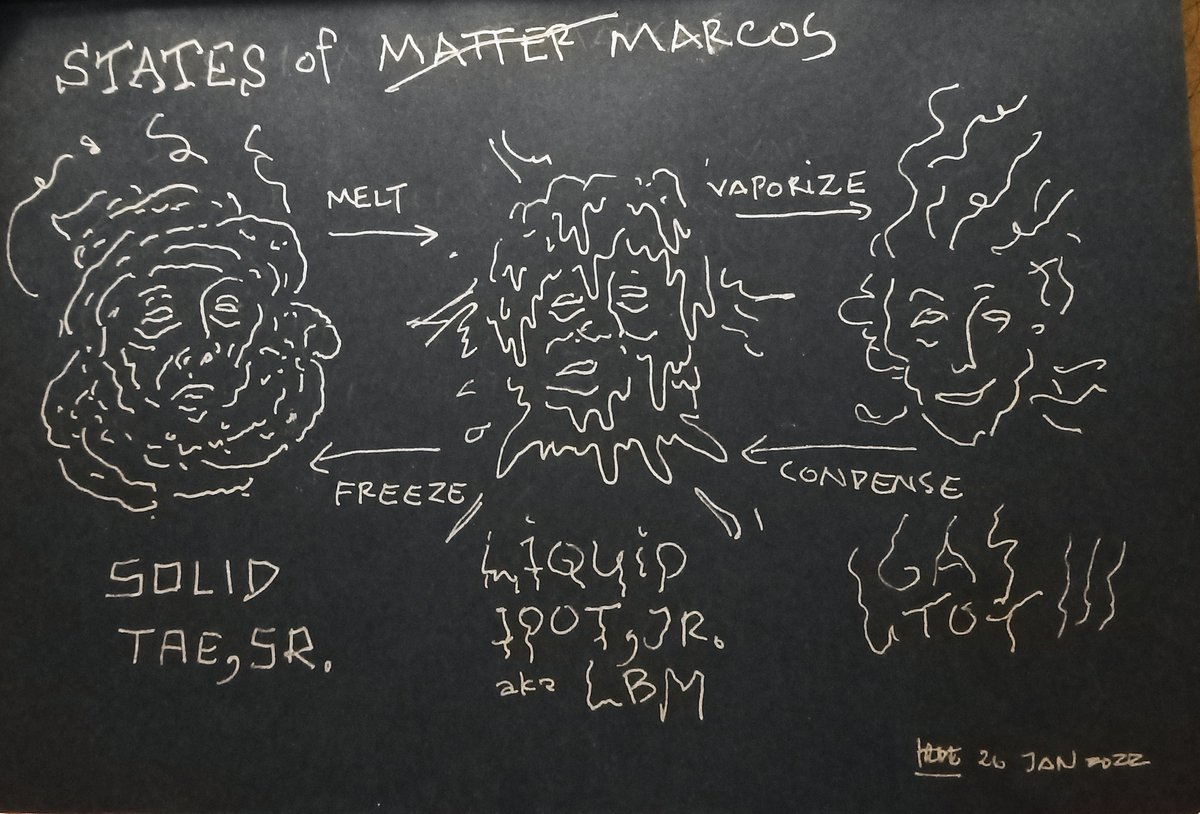 STATES of MATTER MARCOS
MELT
VAPORIZE
FREEZE
CONDENSE
SOLID
TAE, SR.
LIQUID
IPOT, JR.
aka LBM
GAS
UTOT III
26 JAN 2022